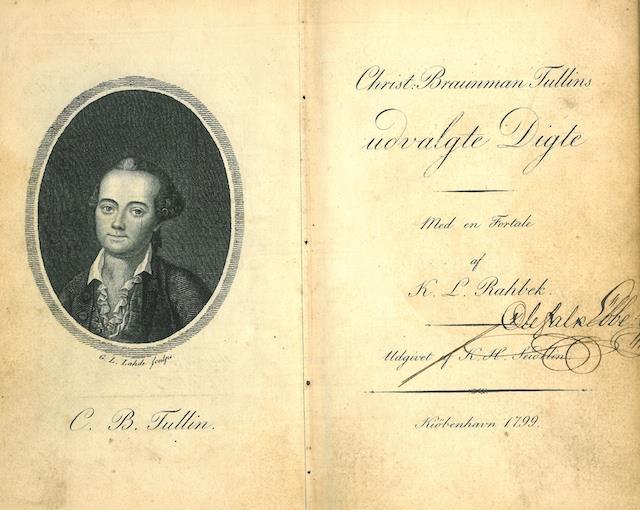 G. L. Lahde sculps
C. B. Tullin.
Christ: Braunman Tullins
udvalgte Digte
Med en Fortale
af
K. L. Rahbek.
Udgivet af K. H. Seidelin
Kiöbenhavn 1799.